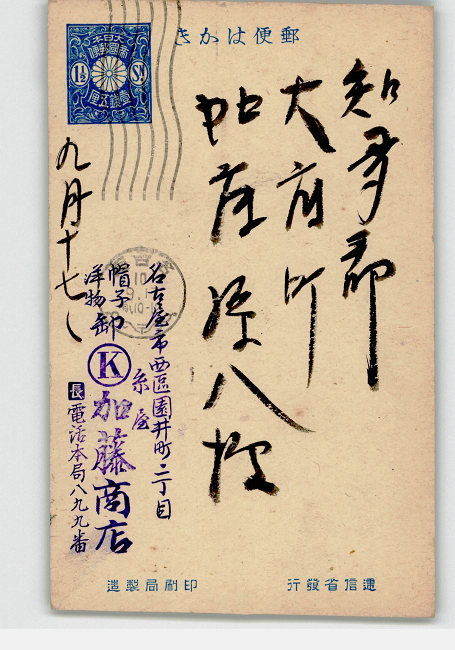 郵便はかき
大日本
帝國郵便
1½ Sɴ
壹錢五厘
知多郡
大府町
八様
九月十七日
名古屋市西區園井町二丁目
糸屋
帽子
洋物
卸
K 加藤商店
長 電話本局八九九番
遞信省發行
印刷局製造